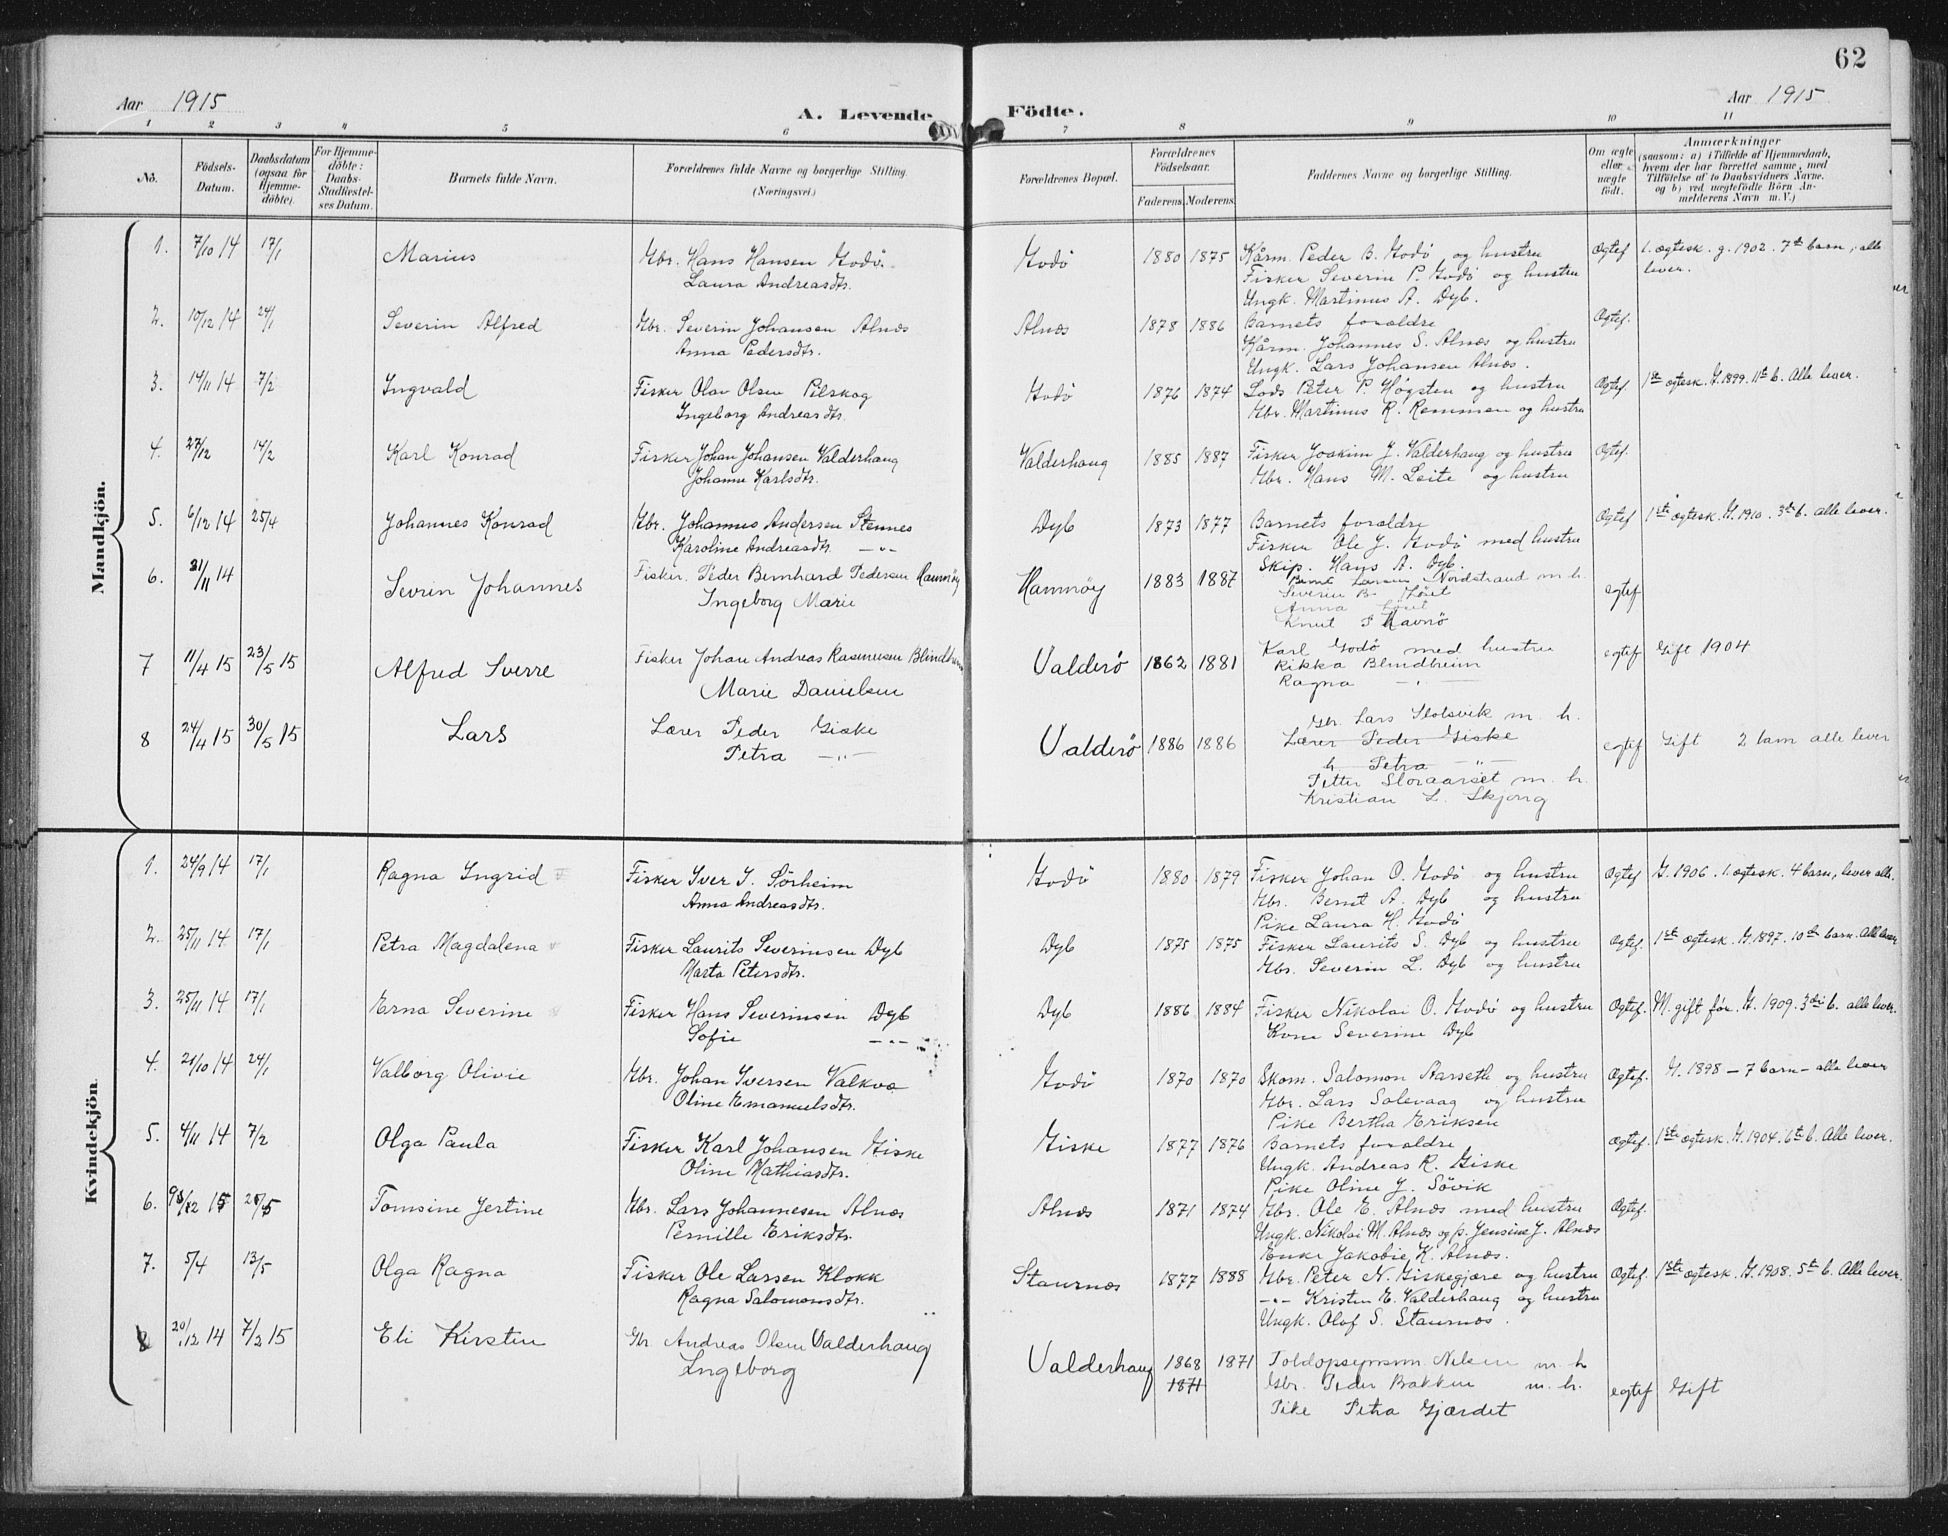 62
Aar 1915
A. Levende Födte.
Aar 1915
1 2 3 4 5 6 7 8 9 10 11
No.
Födsels-Datum.
Daabsdatum (ogsaa för Hjemme-döbte).
For Hjemme-döbte: Daabs-Stadfæstel-ses Datum.
Barnets fulde Navn.
Forældrenes fulde Navne og borgerlige Stilling. (Næringsvei.)
Forældrenes Bopæl.
Forældrenes Födselsaar.
Faderens. Moderens.
Faddernes Navne og borgerlige Stilling.
Om ægte eller uægte födt.
Anmærkninger
(saasom: a) i Tilfælde af Hjemmedaab,
hvem der har forrettet samme, med
Tilföielse af to Daabsvidners Navne.
og b) ved uægtefödte Börn An-
melderens Navn m. V.)
Mandkjön.
1. 7/10 14 17/1 Marius Gbr. Hans Hansen Godö. Godö 1880 1875 Kårm. Peder B. Godö og hustru Ægtef 1. ægtesk. g. 1902. 7de barn, alle
Laura Andreasdtr. Fisker Severin P. Godö og hustru lever.
Ungk. Martinus A. Dyb.
2. 10/12 14 24/1 Severin Alfred Gbr. Severin Johansen Alnæs Alnæs 1878 1886 Barnets forældre Ægtef.
Anna Pedersdtr. Kårm. Johannes S. Alnæs og hustru
Ungk. Lars Johansen Alnæs.
3. 14/11 14 7/2 Ingvald Fisker Olav Olsen Pilskog Godö 1876 1874 Lods Peter P. Høgsten og hustru Ægtef. 1ste ægtesk. G. 1899. 11te b. Alle lever.
Ingeborg Andreasdtr. Gbr. Martinus R. Remmen og hustru
4. 27/12 14/2 Karl Konrad Fisker Johan Johansen Valderhaug Valderhaug 1885 1887 Fisker Joakim J. Valderhaug og hustru Ægtef.
Johanne Karlsdtr. Gbr. Hans M. Leite og hustru
5. 6/12 14 25/4 Johannes Konrad Gbr. Johannes Andersen Stennes Dyb 1873 1877 Barnets forældre Ægtef 1ste ægtesk. G. 1910. 3die b. alle lever.
Karoline Andreasdtr. -"- Fisker Ole J. Godö med hustru
Skip. Hans A. Dyb.
6. 21/11 14 Sevrin Johannes Fisker. Peder Bernhard Pedersen Havnøy Havnøy 1883 1887 Bernt Larsen Nordstrand m. h. egtef
Ingeborg Marie Severin B.
Anna
Knut P Havnö
7 11/4 15 23/5 15 Alfred Sverre Fisker Johan Andreas Rasmusen Blindheim Valderö 1862 1881 Karl Godö med hustru egtef Gift 1904
Marie Danielsen Rikka Blindheim
Ragna -"-
8 24/4 15 30/5 15 Lars Lærer Peder Giske Valderö 1886 1886 Gbr. Lars Slotsvik m. h. egtef Gift 2 barn alle lever
Petra -"- Lærer Peder Giske
h Petra -"-
Petter Storaarset m. h.
Kristian L. Skjong
Kvindekjön.
1. 24/9 14 17/1 Ragna Ingrid Fisker Iver I. Sörheim Godö 1880 1879 Fisker Johan O. Godö og hustru Ægtef G. 1906. 1. ægtesk. 4 barn, lever alle.
Anna Andreasdtr. Gbr. Bernt A. Dyb og hustru
Pike Laura H. Godö
2. 25/11 14 17/1 Petra Magdalena Fisker Laurits Severinsen Dyb Dyb 1875 1875 Fisker Laurits S. Dyb og hustru Ægtef. 1ste ægtesk. G. 1897. 10de barn. Alle lever
Marta Petersdtr. Gbr. Severin L. Dyb og hustru
3. 25/11 14 17/1 Erna Severine Fisker Hans Severinsen Dyb Dyb 1886 1884 Fisker Nikolai O. Godö og hustru Ægtef. M. gift før. G. 1909. 3die b. alle lever.
Sofie -"- Kone Severine Dyb
4. 21/10 14 24/1 Valborg Olivie Gbr. Johan Iversen Valkvæ Godö 1870 1870 Skom. Salomon Aarseth og hustru Ægtef. G. 1898 – 7 barn – alle lever
Oline Emanuelsdtr. Gbr. Lars Solevaag og hustru
Pike Bertha Eriksen
5. 4/11 14 7/2 Olga Paula Fisker Karl Johansen Giske Giske 1877 1876 Barnets forældre Ægtef. 1ste ægtesk. G. 1904. 6te b. Alle lever.
Oline Mathiasdtr. Ungk. Andreas R. Giske
Pike Oline J. Sövik
6. Tomsine Jertine Gbr. Lars Johannesen Alnæs Alnæs 1871 1874 Gbr. Ole E. Alnæs med hustru Ægtef.
Pernille Eriksdtr. Ungk. Nikolai M. Alnæs og p. Jensine J. Alnæs
Enke Jakobie K. Alnæs.
7. 5/4 13/5 Olga Ragna Fisker Ole Larsen Klokk Staurnæs 1877 1888 Gbr. Peter N. Giskegjære og hustru Ægtef. 1ste ægtesk. G. 1908. 5te b. Alle lever.
Ragna Salomonsdtr. -"- Kristen E. Valderhaug og hustru
Ungk. Olof S. Staurnæs.
8 20/12 14 7/2 15 Eli Kirsten Gbr. Andreas Olsen Valderhaug Valderhaug 1868 1871 Toldopsynsm. Nilsen m. h
Ingeborg 1871 Gbr. Peder Bakken m. h. egtef Gift
Pike Petra Gjærdet